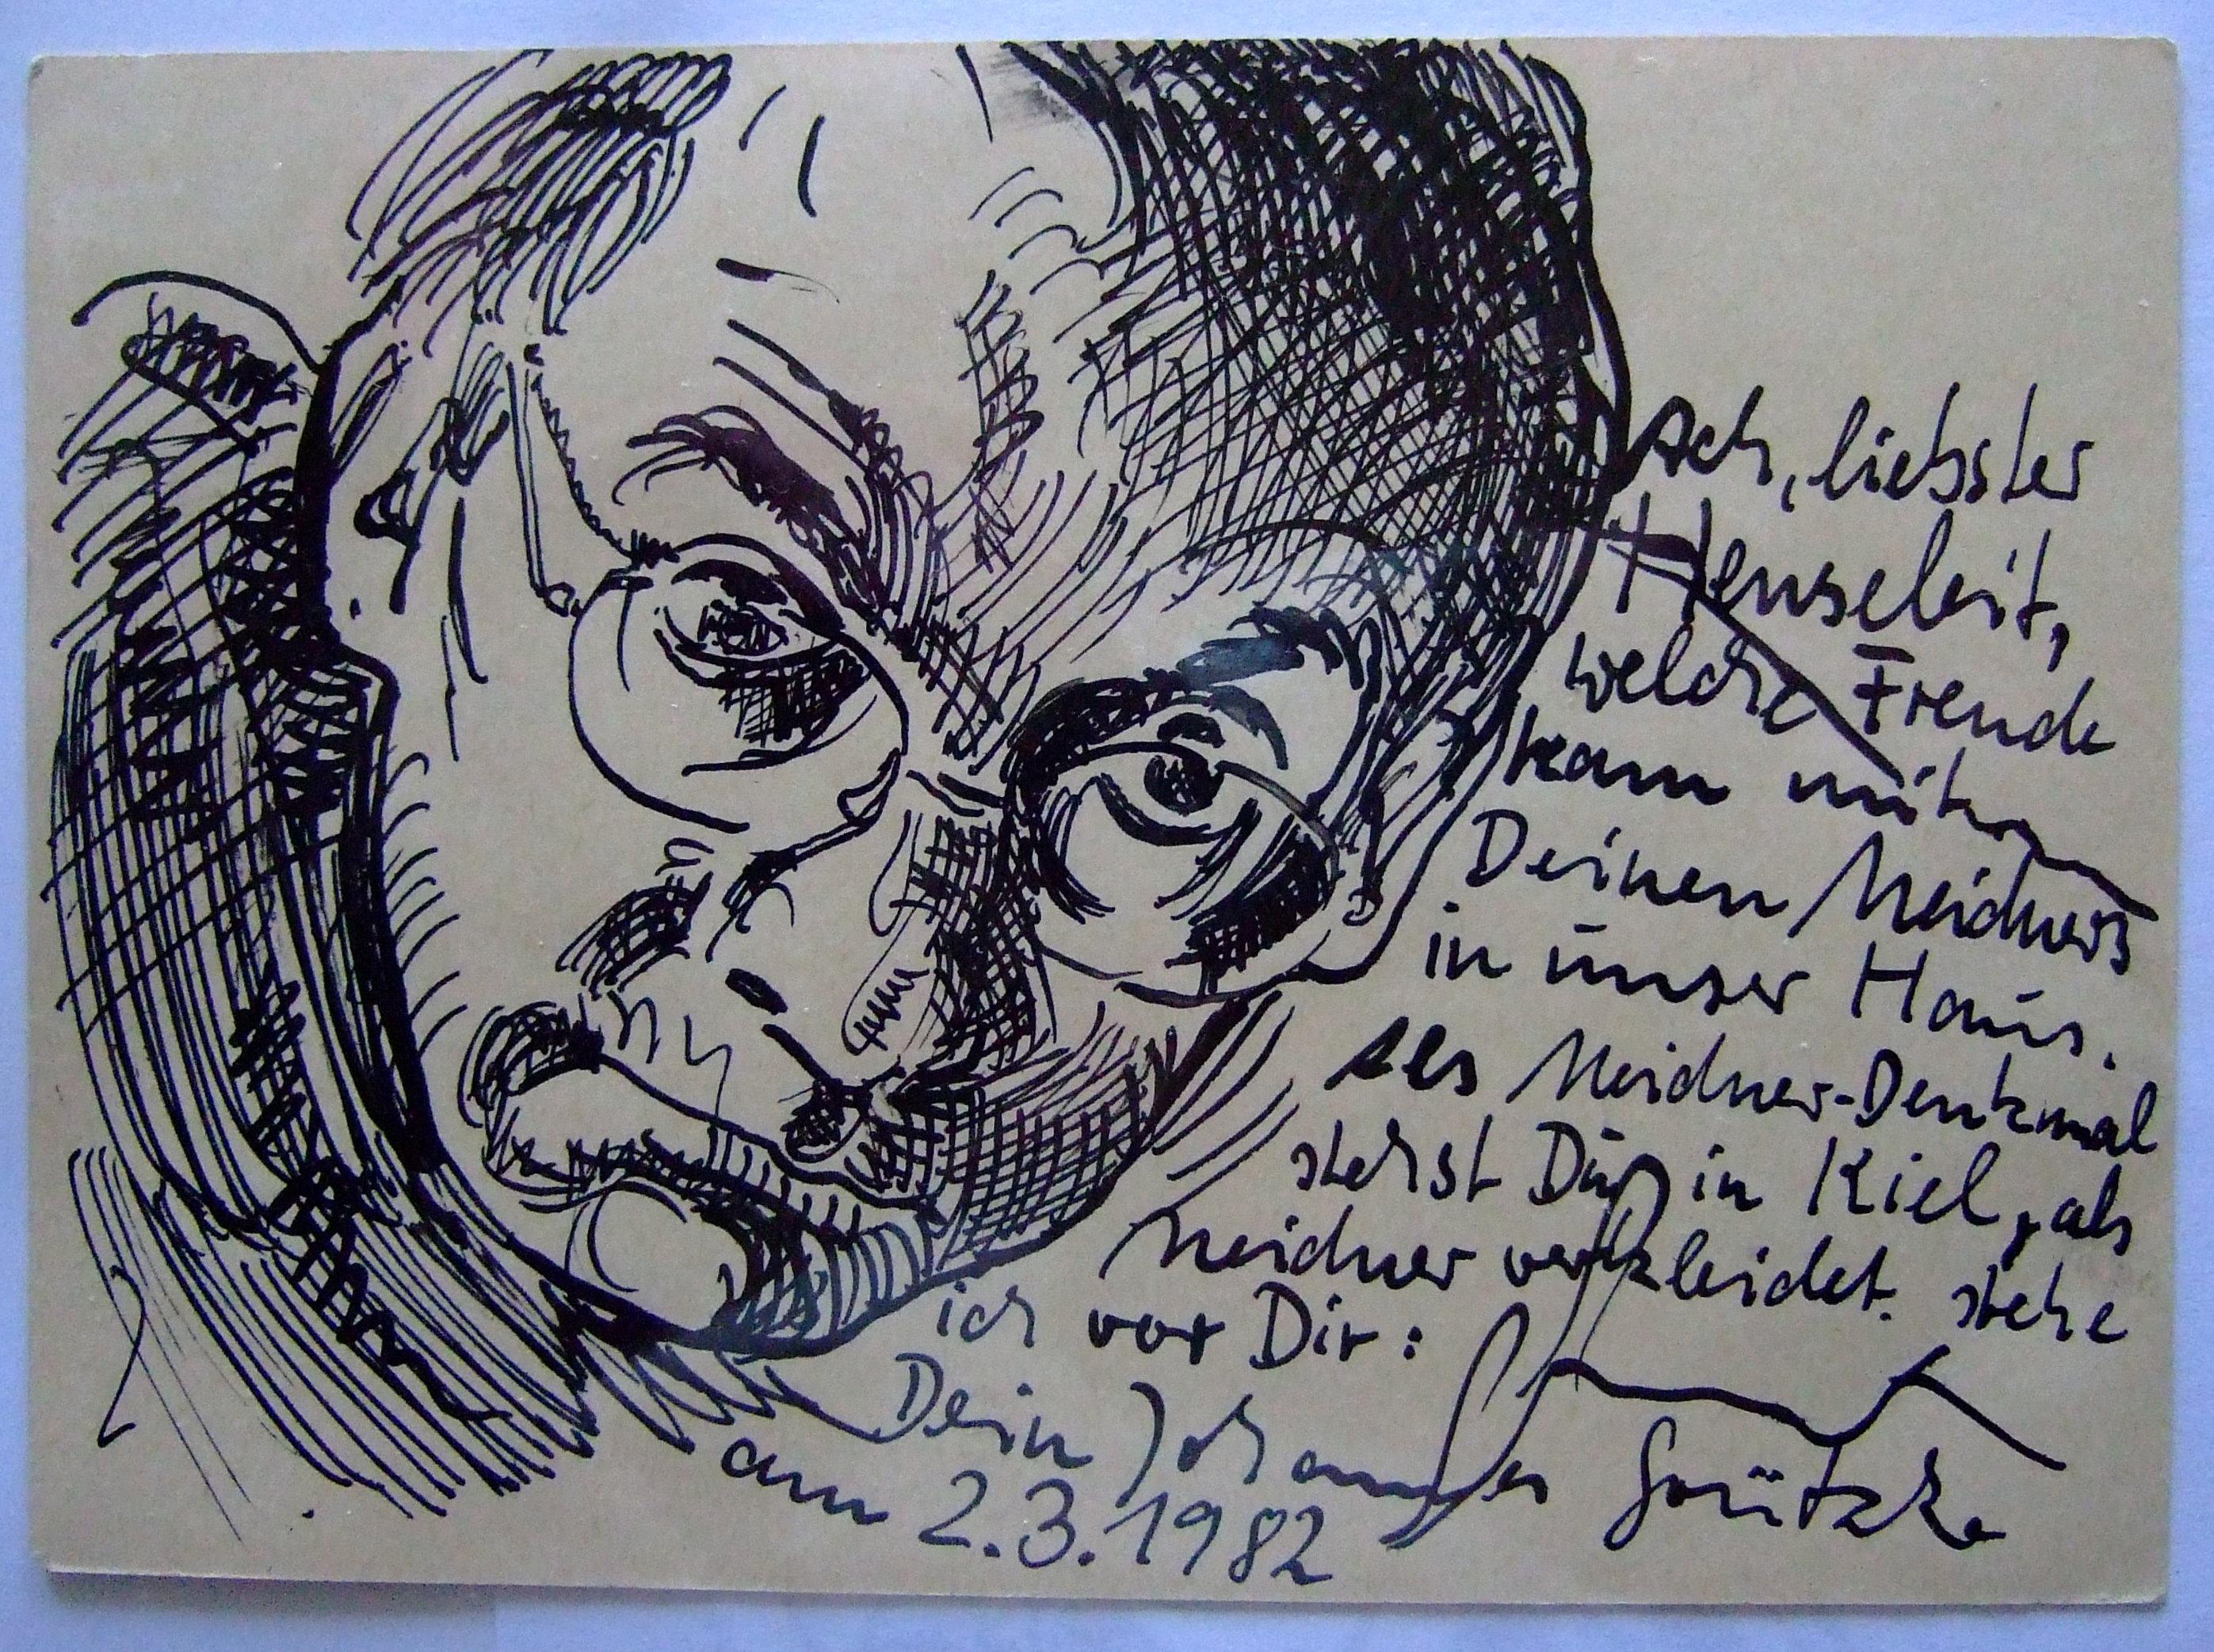 Ach, liebster
Henseleit,
welche Freude
kam mit
Deinen Meidners
in unser Haus.
Als Meidner-Denkmal
stehst Du in Kiel, als
Meidner verkleidet stehe
ich vor Dir:
Dein Johannes Grützke
am 2.3.1982